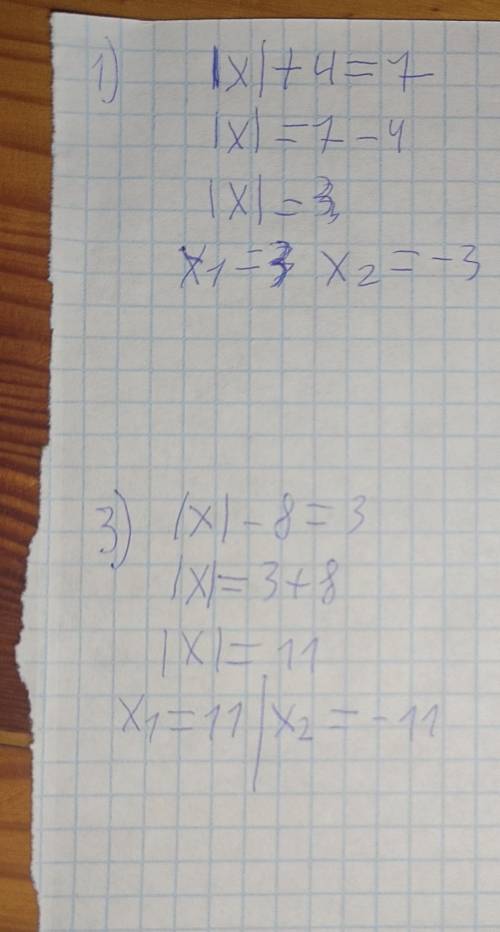 1) |x| + 4 = 7
|x| = 7 - 4
|x| = 3
x1 = 3 x2 = -3
3) |x| - 8 = 3
|x| = 3 + 8
|x| = 11
x1 = 11 | x2 = -11